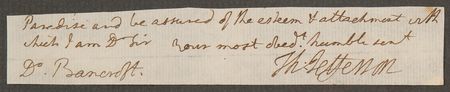 Paradise and be assured of the esteem & attachment with
which I am Dr Sir your most obedt. humble servt
Dr. Bancroft. Th: Jefferson